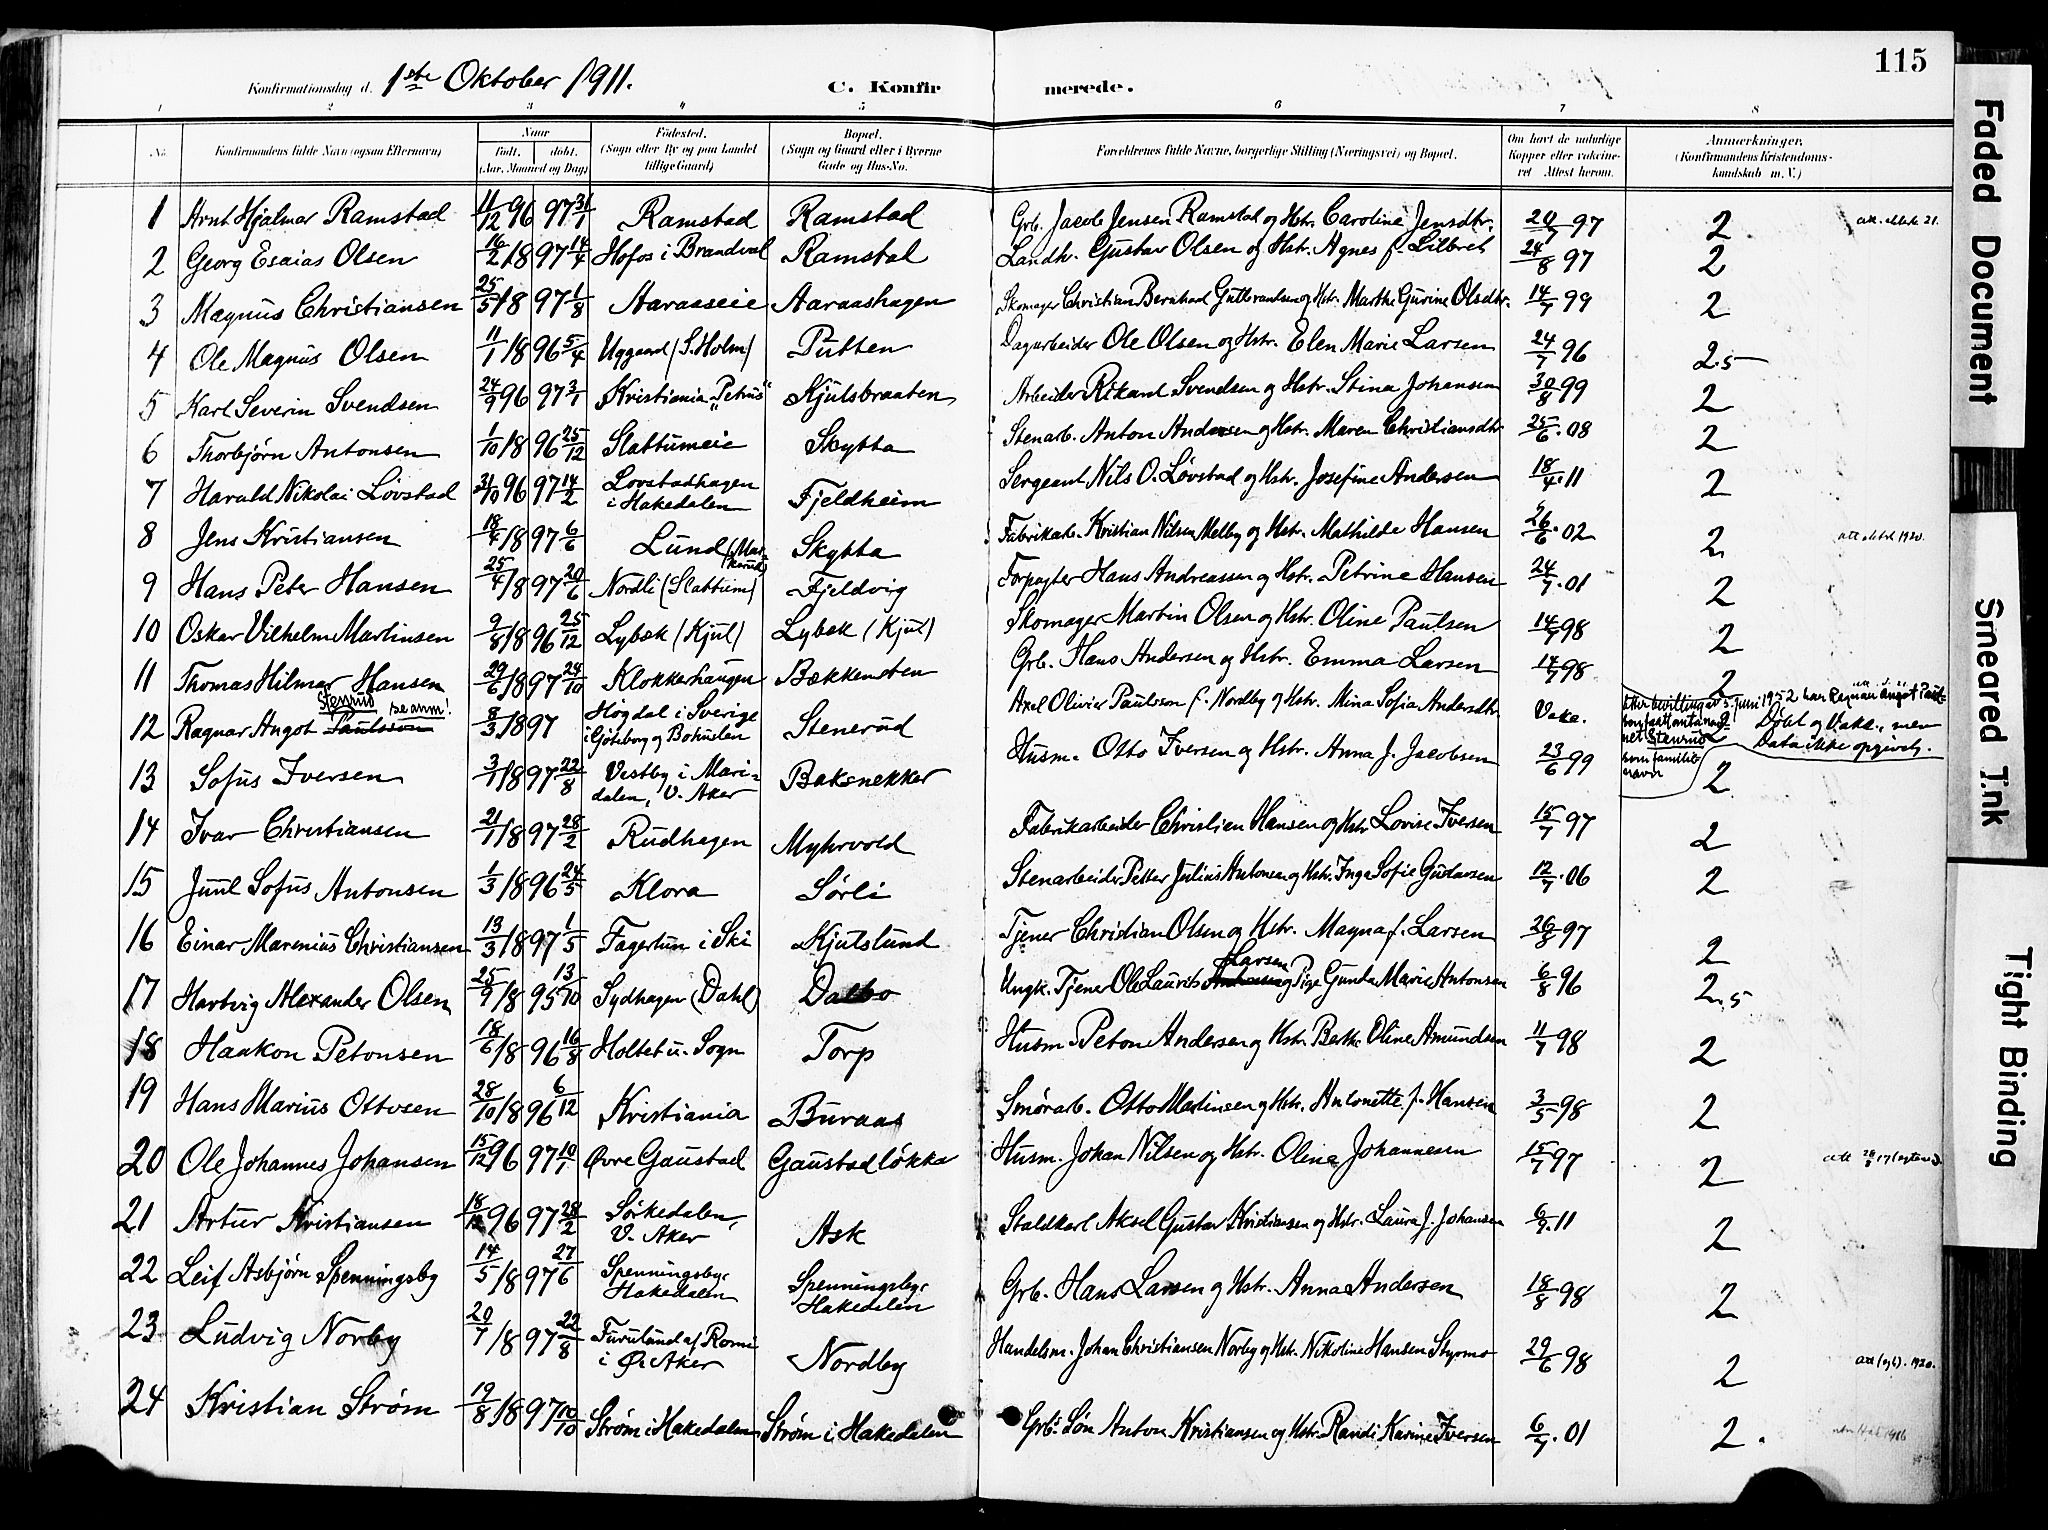 115
Konfirmationsdag d. 1ste Oktober 1911. C. Konfirmerede.
1 2 3 4 5 6 7 8
No. Konfirmandens fulde Navn (ogsaa Efternavn) Naar Födt. döbt. (Aar, Maaned og Dag) Födested. (Sogn eller By og paa Landet tillige Gaard) Bopæl. (Sogn og Gaard eller i Byerne Gade og Hus-No. Forældrenes fulde Navne, borgerlige Stilling (Næringsvei) og Bopæl. Om havt de naturlige Kopper eller vakcineret Attest herom. Anmerkninger. (Konfirmandens Kristendomskundskab m. V.)
1 Arnt Hjalmar Ramstad 11/12 96 97 31/1 Ramstad Ramstad Grb. Jacob Jensen Ramstad og Hstr. Caroline Jensdtr. 97 2
2 Georg Esaias Olsen 16/2 18 97 14/4 Hofos i Brandval Ramstad Landh. Gustav Olsen og Hstr. Agnes f. 24/8 97 2
3 Magnus Christiansen 25/5 18 97 1/8 Aaraaseie Aaraashagen Skomager Christian Bernhard Gulbrandsen og Hstr. Marthe Gurine Olsdtr. 14/7 99 2
4 Ole Magnus Olsen 11/1 18 96 5/4 Uggerud (S. Holm) Putten Dagarbeider Ole Olsen og Hstr. Elen Marie Larsen 24/7 96 2.5
5 Karl Severin Svendsen 24/9 96 97 3/1 Kristiania "Petrus" Kjulsbraaten Arbeider Rikard Svendsen og Hstr. Stina Johansen 30/8 99 2
6 Thorbjørn Antonsen 1/10 18 96 25/12 Slattumeie Skytta Stenarb. Anton Andersen og Hstr. Maren Christiansdtr. 25/6. 08 2
7 Harald Nikolai Løvstad 31/10 96 97 14/2 Lovstadhagen i Hakedalen Fjeldheim Sergeant Nils O. Løvstad og Hstr. Josefine Andersen 18/4. 11 2
8 Jens Kristiansen 18/4 18 97 6/6 Lund Skytta Fabrikarb. Kristian Nilsen Melby og Hstr. Mathilde Hansen 26/6. 02 2
9 Hans Peter Hansen 25/4 18 97 20/6 Nordli (Slattum) Fjeldvig Forpagter Hans Andreassen og Hstr. Petrine Hansen 24/7. 01 2
10 Oskar Vilhelm Martinsen 9/8 18 96 25/12 Lybæk (Kjul) Lybæk (Kjul) Skomager Martin Olsen og Hstr. Oline Paulsen 14/7 98 2
11 Thomas Hilmar Hansen 29/6 18 97 24/10 Klokkerhaugen Bækkensten Grb. Hans Andersen og Hstr. Emma Larsen 14/7 98 2
12 Ragnar Angot Paulsson Stenrud se anm! 8/3 18 97 Høgdal i Sverige i Gøteborg og Bohuslen Stenerud Axel Olivier Paulsson f. Nordby og Hstr. Mina Sofia Andersdtr. Vakc. 2 Døbt og Vakc., men Data ikke opgivet.
Efter bevilling av 5. juni 1952 har Ragnar Angot
13 Sofus Iversen 3/1 18 97 22/8 Vestby i Maridalen, V. Aker Baksnekker Husm. Otto Iversen og Hstr. Anna J. Jacobsen 23/6 99 2
14 Ivar Christiansen 21/1 18 97 28/2 Rudhagen Myhrvold Fabrikarbeider Christian Hansen og Hstr. Lovise Iversen 15/7 97 2
15 Juul Sofus Antonsen 1/3 18 96 24/5 Klora Sørli Stenarbeider Petter Julius Antonsen og Hstr. Inga Sofie Gustavsen 12/7. 06 2
16 Einar Marenius Christiansen 13/3 18 97 1/5 Fagertun i Ski Kjulslund Tjener Christian Olsen og Hstr. Magna f. Larsen 26/8 97 2
17 Hartvig Alexander Olsen 25/9 18 95 13/10 Sydhagen (Dahl) Dalbo Ungk. Tjener Ole Laurits Larsen og Pige Gunda Marie Antonsen 6/8 96 2.5
18 Haakon Petonsen 18/6 18 96 16/8 Holtet u. Sogn Torp Husm. Peton Andersen og Hstr. Berthe Oline Amundsen 11/7 98 2
19 Hans Marius Ottosen 28/10 18 96 6/12 Kristiania Buraas Smørarb. Otto Martinsen og Hstr. Antonette f. Hansen 3/5 98 2
20 Ole Johannes Johansen 15/12 96 97 10/1 Øvre Gaustad Gaustadløkka Husm. Johan Nilsen og Hstr. Oline Johannesen 15/7 97 2
21 Artur Kristiansen 18/12 96 97 28/2 Sørkedalen, V. Aker Ask Staldkarl Aksel Gustav Kristiansen og Hstr. Laura J. Johansen 6/7. 11 2
22 Leif Asbjørn Spenningsby 14/5 18 97 27/6 Spenningsby, Hakedalen Spenningsby, Hakedalen Grb. Hans Larsen og Hstr. Anna Andersen 18/8 98 2
23 Ludvig Norby 20/7 18 97 22/8 Furulund af Romi i Ø. Aker Nordby Handelsm. Johan Christiansen Norby og Hstr. Nikoline Hansen 29/6 98 2
24 Kristian Strøm 19/8 18 97 10/10 Strøm i Hakedalen Strøm i Hakedalen Grb's Søn Anton Kristiansen og Hstr. Randi Karine Iversen 6/7. 01 2
Faded Document
Smeared Ink
Tight Binding